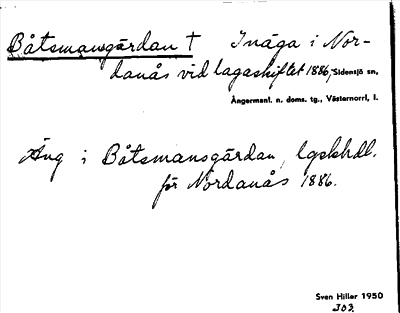 Båtsmansgärdan † Inäga i Nor-
danås vid lagaskiftet 1886, Sidensjö sn,
Ångermanl. n. doms. tg., Västernorrl. l.
Äng i Båtsmansgärdan, lgskhdl.
för Nordanås 1886.
Sven Hiller 1950
J03.